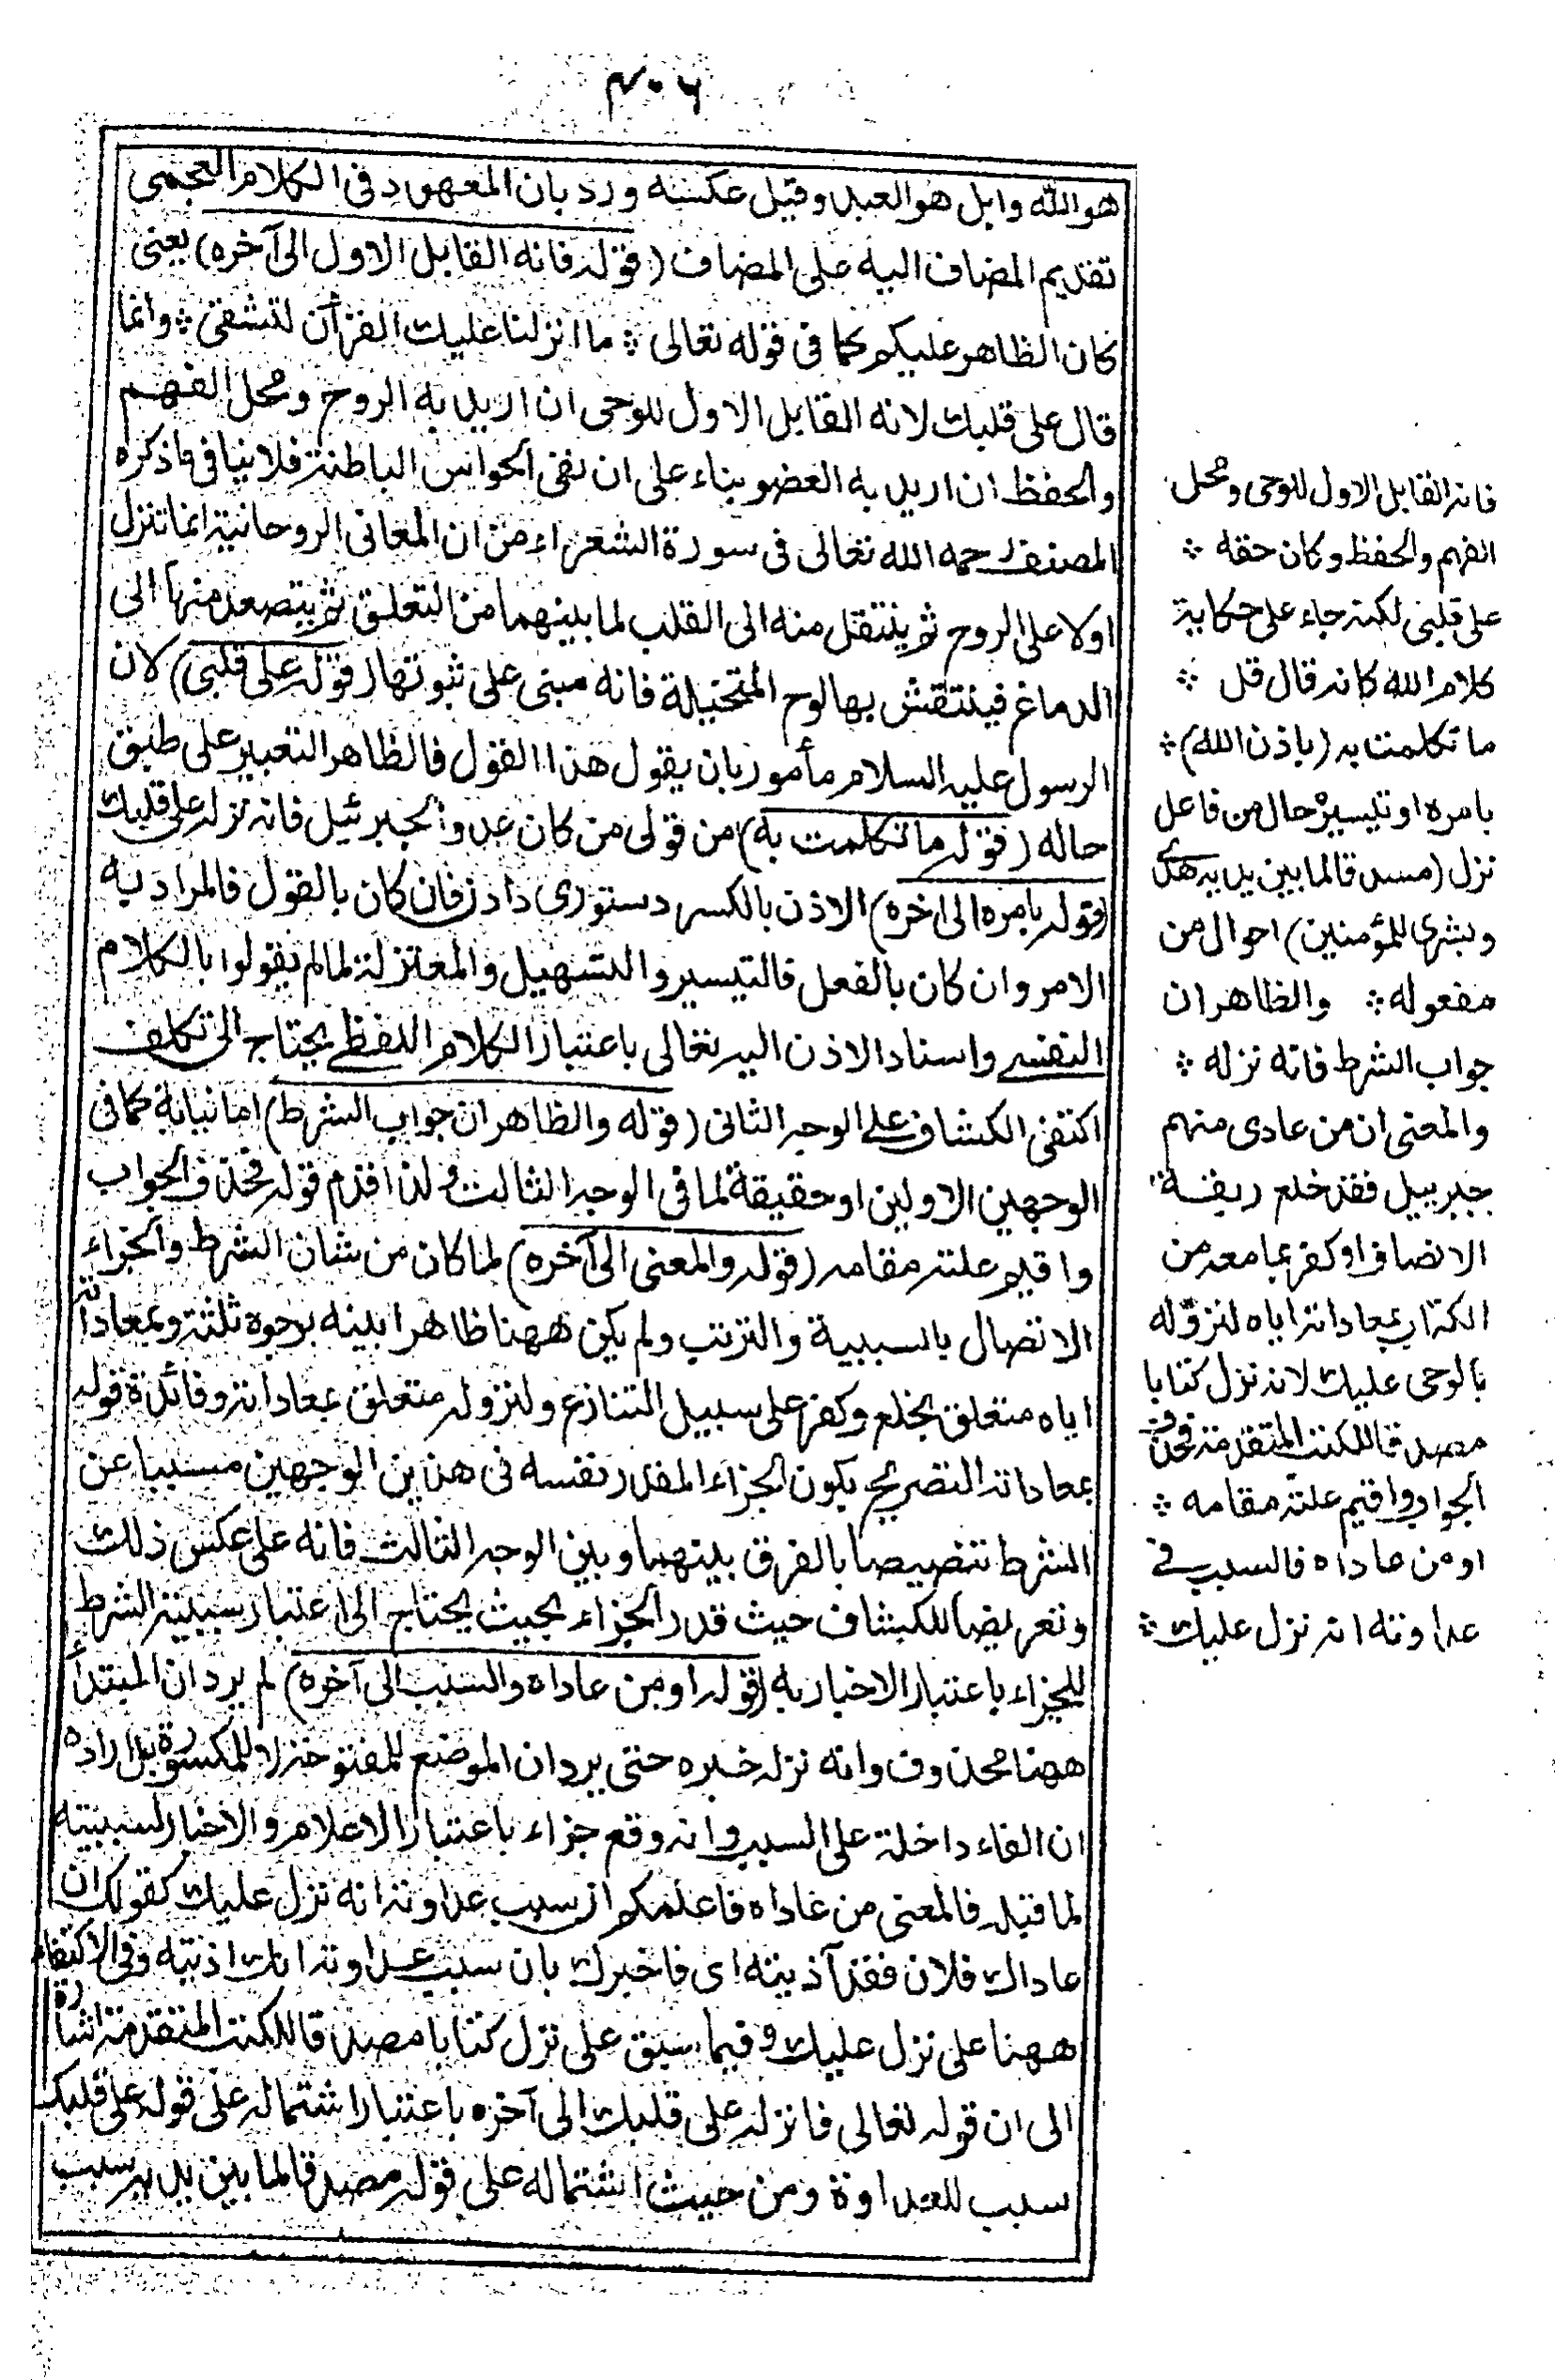 ٤٠٦
هو الله وايل هو العبد وقيل عكسه ورد بان المعهود فى الكلام العجمى
تقديم المضاف اليه على المضاف (قوله فانه القابل الاول الى آخره) يعنى
كان الظاهر عليكم كما فى قوله تعالى ؞ ما انزلنا عليك القرآن لتشقى ؞ وانما
قال على قلبك لانه القابل الاول للوحى ان اريد به الروح ومحل الفهم
والحفظ ان اريد به العضو بناء على ان نفى الحواس الباطنة فلا ينافى ما ذكره
المصنف رحمه الله تعالى فى سورة الشعراء من ان المعانى الروحانية انما تنزل
اولا على الروح ثم ينتقل منه الى القلب لما بينهما من التعلق ثم يتصعد منها الى
الدماغ فينتقش بها لوح المتخيلة فانه مبنى على ثبوتها (قوله على قلبى) لان
الرسول عليه السلام مأمور بان يقول هذا القول فالظاهر التعبير على طبق
حاله (قوله ما تكلمت به) من قولى من كان عدوا لجبرئيل فانه نزله على قلبك
(قوله بامره الى اخره) الاذن بالكسر دستورى دادن فان كان بالقول فالمراد به
الامر وان كان بالفعل فالتيسير والتسهيل والمعتزلة لما لم يقولوا بالكلام
النفسى واسناد الاذن اليه تعالى باعتبار الكلام اللفظى يحتاج الى تكلف
اكتفى الكشاف على الوجه الثانى (قوله والظاهر ان جواب الشرط) اما نيابة كما فى
الوجهين الاولين او حقيقة لما فى الوجه الثالث ولذا قدم قوله فحذف الجواب
واقيم علته مقامه (قوله والمعنى الى آخره) لما كان من شان الشرط والجزاء
الاتصال بالسببية والترتب ولم يكن ههنا ظاهرا بينه بوجوه ثلثة وبمعاداته
اياه متعلق بخلع وكفر على سبيل التنازع ولنزوله متعلق بمعاداته وفائدة قوله
بمعاداته التصريح بكون الجزاء المقدر نفسه فى هذين الوجهين مسببا عن
الشرط تنصيصا بالفرق بينهما وبين الوجه الثالث فانه على عكس ذلك
وتعريضا للكشاف حيث قدر الجزاء بحيث يحتاج الى اعتبار سببية الشرط
للجزاء باعتبار الاخبار به (قوله او من عاداه والسبب الى آخره) لم يرد ان المبتدأ
ههنا محذوف وانه نزله خبره حتى يرد ان الموضع للمفتوحة لا للمكسورة بل اراد
ان الفاء داخلة على السبب وانه وقع جزاء باعتبار الاعلام والاخبار لسببيته
لما قبله فالمعنى من عاداه فاعلمكم ان سبب عداوته انه نزل عليك كقولك ان
عاداك فلان فقد آذيته اى فاخبرك بان سبب عداوته انك اذيته وفى الاكتفاء
ههنا على نزل عليك وفيما سبق على نزل كتابا مصدقا للكتب المتقدمة اشارة
الى ان قوله تعالى فانه نزله على قلبك الى آخره باعتبار اشتماله على قوله على قلبك
سبب للعداوة ومن حيث اشتماله على قوله مصدقا لما بين يديه سبب
فانه القابل الاول للوحى ومحل
الفهم والحفظ وكان حقه ؞
على قلبى لكنه جاء على حكاية
كلام الله كانه قال قل ؞
ما تكلمت به (باذن الله) ؞
بامره او تيسيره حال من فاعل
نزل (مصدقا لما بين يديه هدى
وبشرى للمؤمنين) احوال من
مفعوله ؞ والظاهر ان
جواب الشرط فانه نزله ؞
والمعنى ان من عادى منهم
جبرييل فقد خلع ربقة
الانصاف او كفر بما معه من
الكتاب بمعاداته اياه لنزوله
بالوحى عليك لانه نزل كتابا
مصدقا للكتب المتقدمة فحذف
الجواب واقيم علته مقامه ؞
او من عاداه فالسبب فى
عداوته انه نزل عليك ؞